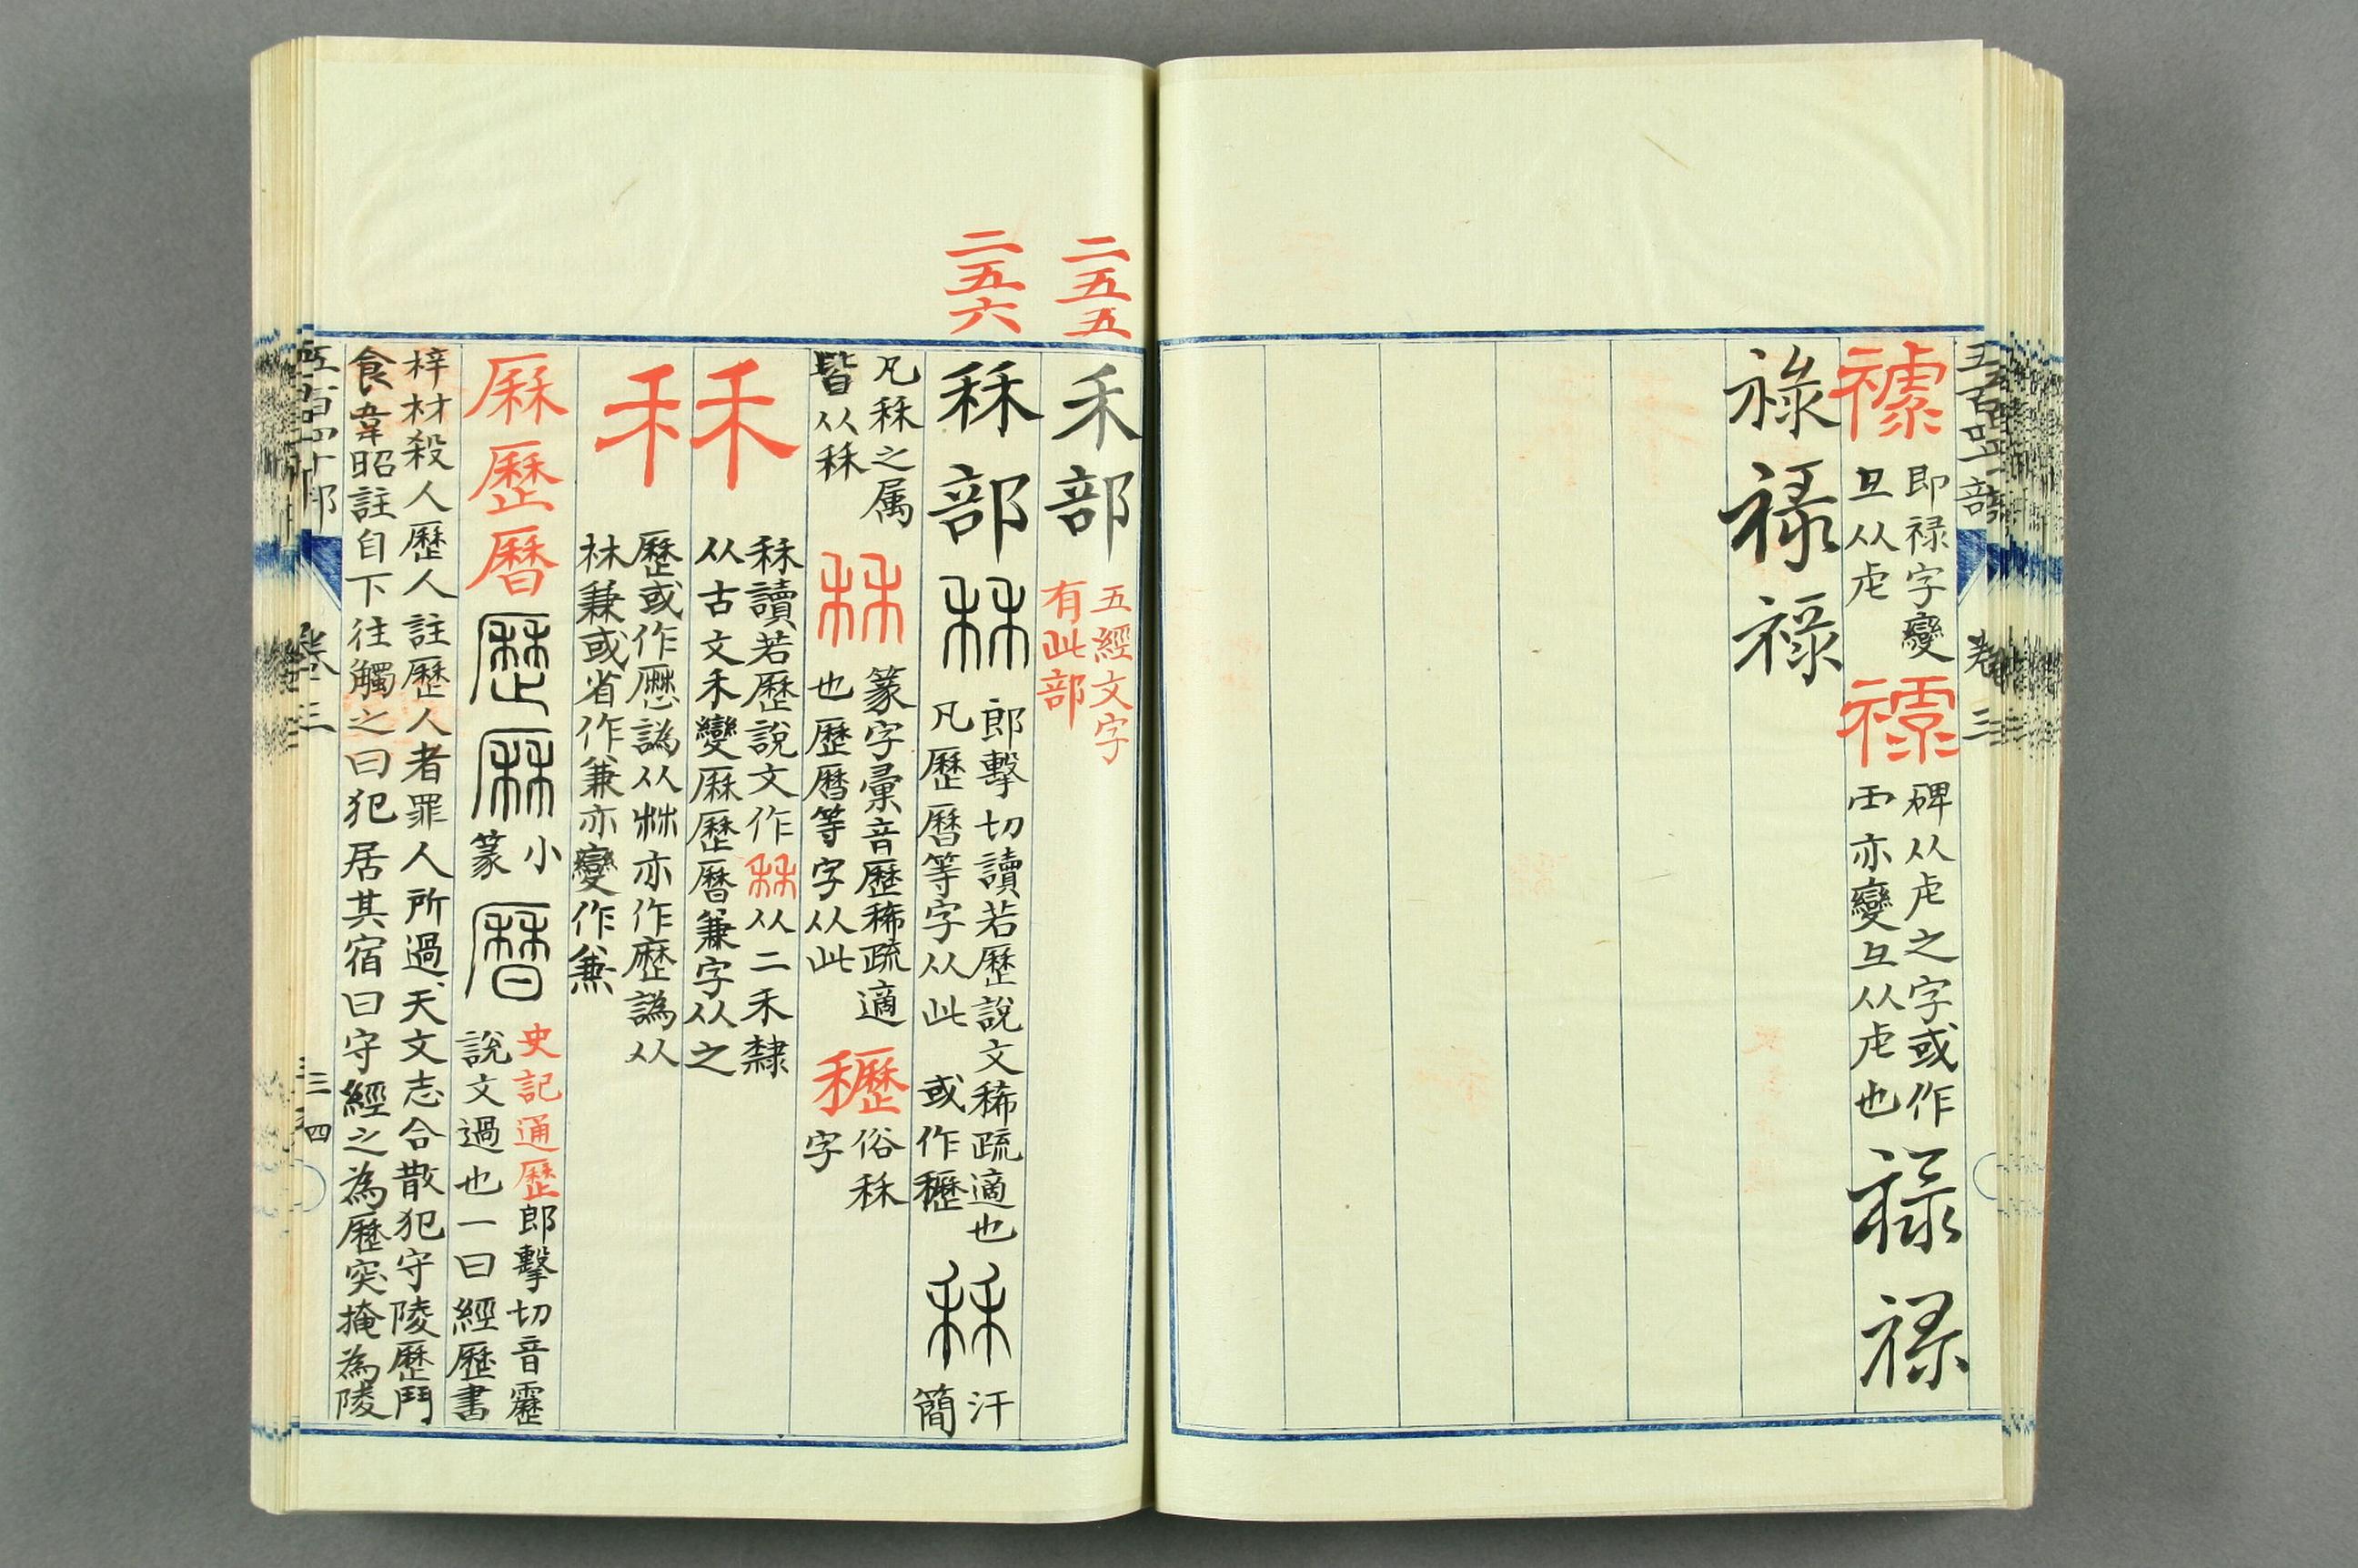 即祿字變
旦从虍
碑从虍之字或作
亦變 从虍也
祿祿祿
二五五
禾部
五經文字
有此部
二五六
秝部
郎擊切讀若歷說文稀疏適也
凡歷曆等字从此 或作
汗
簡
凡秝之属
皆从秝
篆字彙音歷稀疏適
也歷曆等字从此
俗秝
字
禾
秝讀若歷說文作秝从二禾隸
从古文禾變厤歷曆兼字从之
禾
歷或作 譌从 亦作 譌从
林兼或省作兼亦變作
厤歷曆
小
篆
史記通歷郎擊切音靂
說文過也一曰經歷書
梓材殺人歷人註歷人者罪人所過天文志合散犯守陵歷鬥
食韋昭註自下往觸之曰犯居其宿曰守經之為歷突掩為陵
五百四十部
卷三
三四